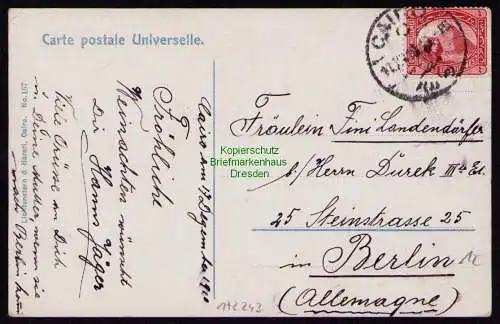 Carte postale Universelle.
CAIRO
Cairo am 17 Dezember 1910
Fröhliche
Weinachten wünscht
Dir
Hanns Jäger
Viele Grüsse an Dich
u. Deine Mutter, wenn sie
nach Berlin
Lichtenstern & Harari, Cairo. No. 157
Kopierschutz
Briefmarkenhaus
Dresden
Fräulein Fini Landendörfer
b/Herrn Durek III Et.
25 Steinstrasse 25
in Berlin
(Allemagne)
142243